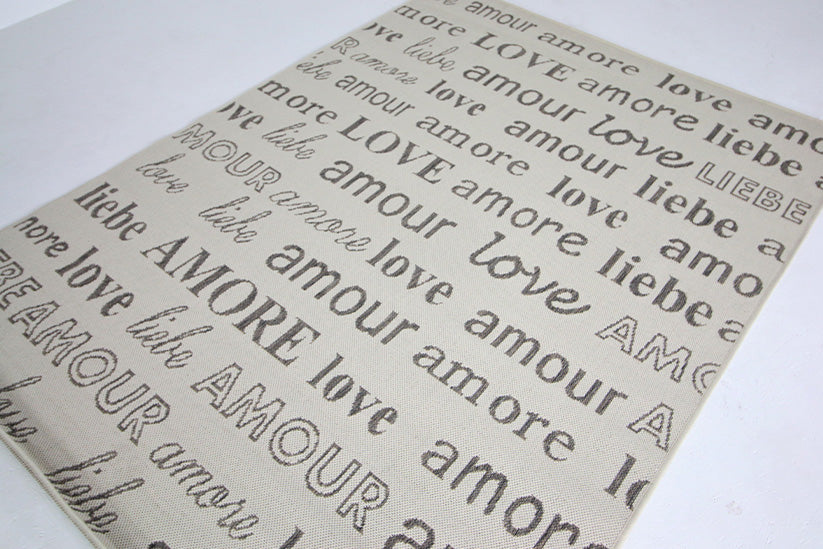 amour amore love amo
more LOVE amour amore liebe
liebe amour love LIEBE
amore love amour liebe a
amour amore love amo
more LOVE amore liebe a
love liebe amour love AMO
MOUR amore love amour A
love liebe amour amore lo
liebe AMORE love amor
more love liebe AMOUR
AMOUR amore
love liebe